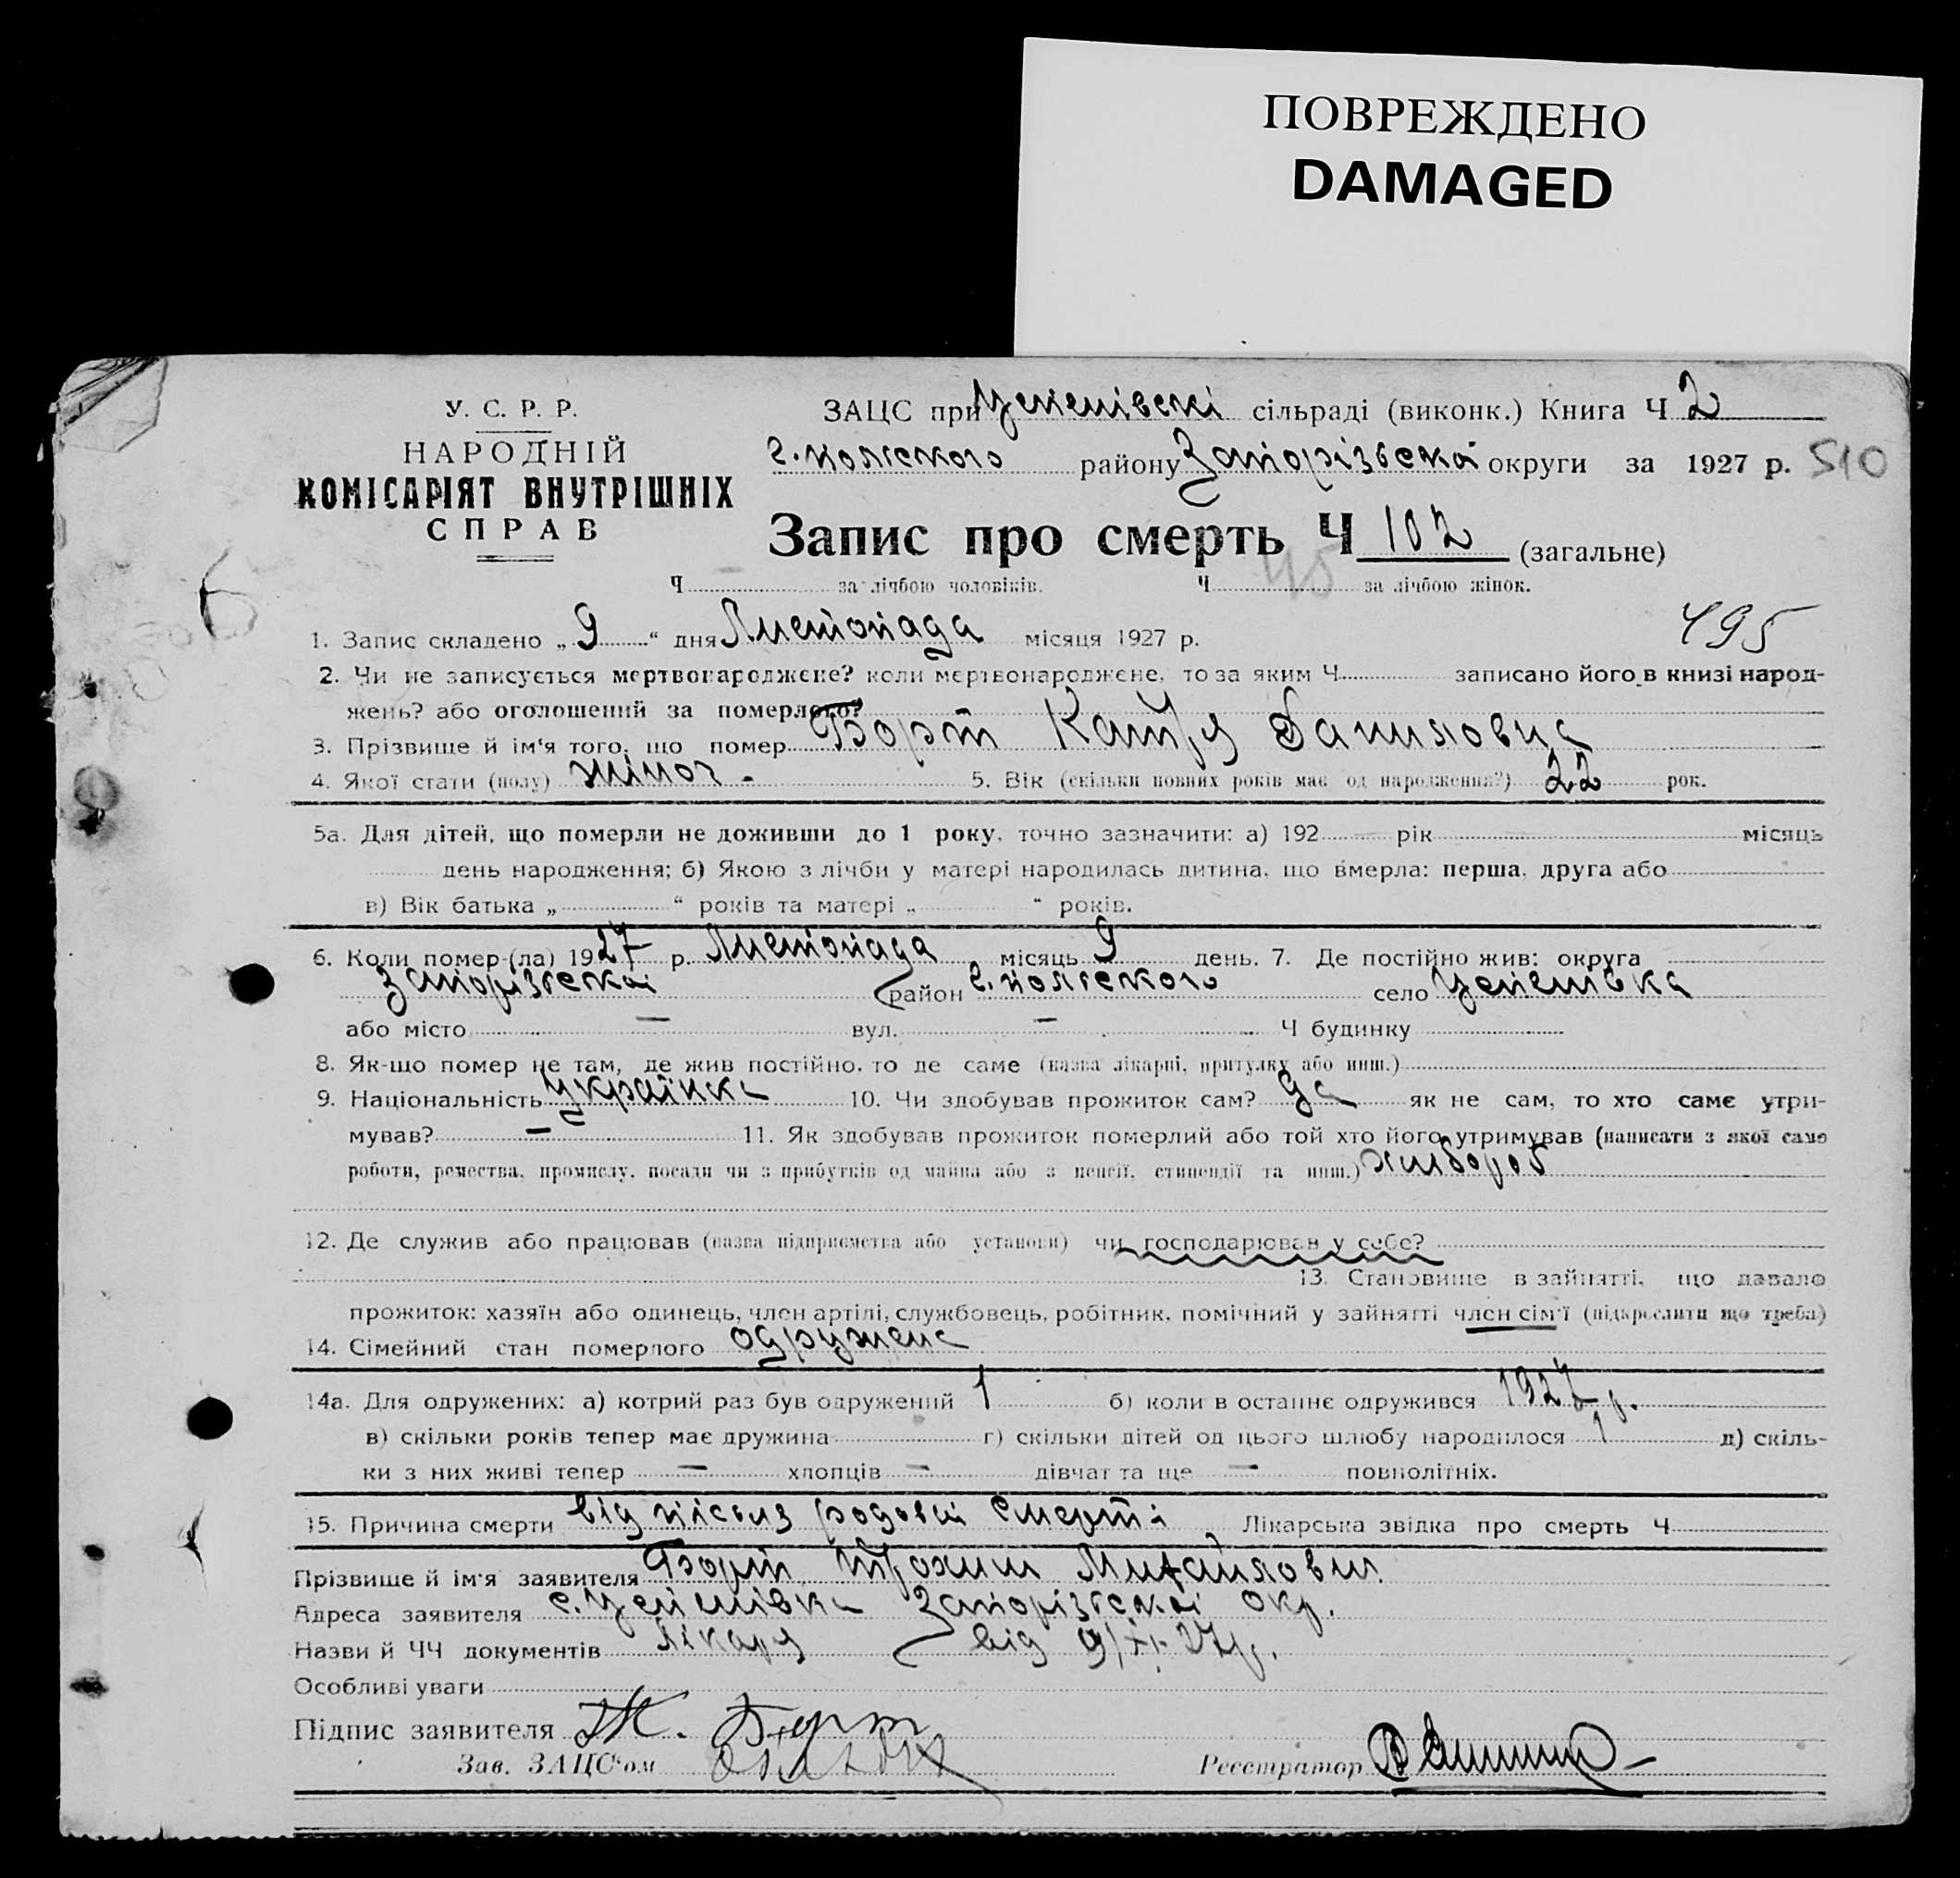 ПОВРЕЖДЕНО
DAMAGED
У. С. Р. Р.
НАРОДНІЙ
КОМІСАРІЯТ ВНУТРІШНІХ
СПРАВ
ЗАЦС при Успенівскі сільраді (виконк.) Книга Ч 2
г. полского району Запорізької округи за 1927 р. 510
Запис про смерть Ч 102 (загальне)
Ч за лічбою чоловіків. Ч 45 за лічбою жінок.
495
1. Запис складено „ 9 “ дня Листопада місяця 1927 р.
2. Чи не записується мертвонароджене? коли мертвонароджене, то за яким Ч записано його в книзі народ-
жень? або оголошений за померлого?
3. Прізвище й ім'я того, що помер Борт Катря Даниловна
4. Якої стати (полу) жіноч. 5. Вік (скільки повних років має од народження?) 22 рок.
5а. Для дітей, що померли не доживши до 1 року, точно зазначити: а) 192 рік місяць
день народження; б) Якою з лічби у матері народилась дитина, що вмерла: перша, друга або
в) Вік батька „ “ років та матері „ “ років.
6. Коли помер-(ла) 1927 р. Листопада місяць 9 день. 7. Де постійно жив: округа
Запорізської район г. полского село Успенівка
або місто — вул. — Ч будинку
8. Як-що помер не там, де жив постійно, то де саме (назва лікарні, притулку або инш.)
9. Національність українка 10. Чи здобував прожиток сам? да як не сам, то хто саме утри-
мував? — 11. Як здобував прожиток померлий або той хто його утримував (написати з якої само
роботи, ремества, промислу, посади чи з прибутків од майна або з пенсії, стипендії та инш.) хлібороб
12. Де служив або працював (назва підприємства або установи) чи господарював у себе?
13. Становище в зайнятті, що давало
прожиток: хазяїн або одинець, член артілі, службовець, робітник, помічний у зайнятті член сім'ї (підкреслити що треба)
14. Сімейний стан померлого одружена
14а. Для одружених: а) котрий раз був одружений 1 б) коли в останнє одружився 1927 р.
в) скільки років тепер має дружина г) скільки дітей од цього шлюбу народилося 1 д) скіль-
ки з них живі тепер — хлопців — дівчат та ще — повнолітніх.
15. Причина смерти від родової смерті Лікарська звідка про смерть Ч
Прізвище й ім'я заявителя Борт Трохим Михайлович.
Адреса заявителя с. Успенівка Запорізської окр.
Назви й ЧЧ документів Лікаря від 9/XI 27 р.
Особливі уваги
Підпис заявителя
Зав. ЗАЦС'ом
Реєстратор